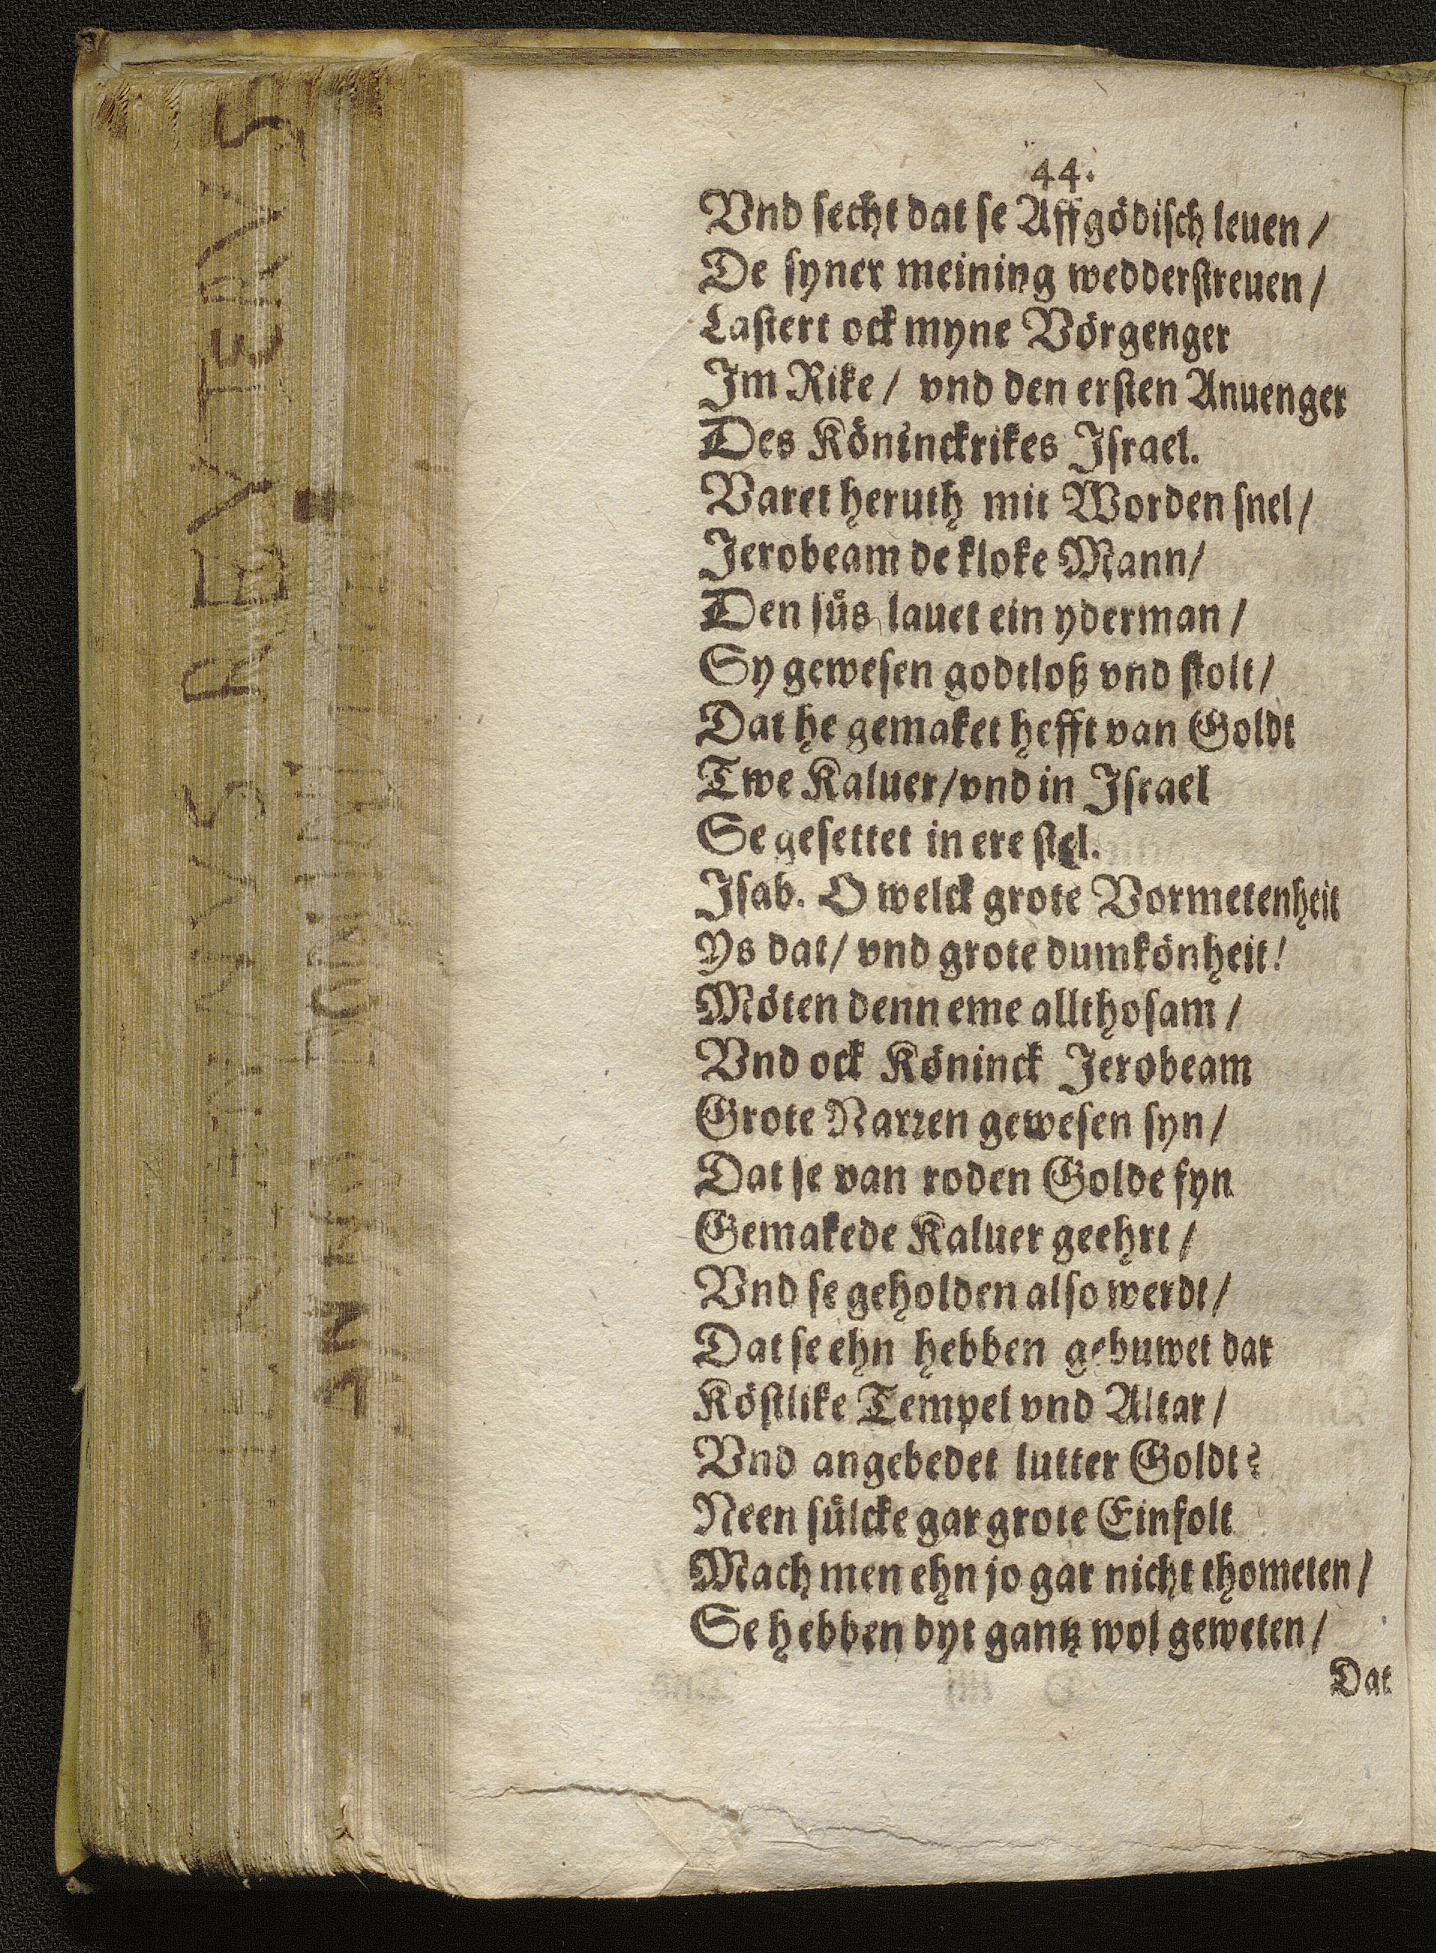 44.
Vnd secht dat se Affgödisch leuen /
De syner meining wedderstreuen /
Lastert ock myne Vörgenger
Jm Rike / vnd den ersten Anuenger
Des Köninckrikes Jsrael.
Varet heruth mit Worden snel /
Jerobeam de kloke Mann /
Den süs lauet ein yderman /
Sy gewesen godtloß vnd stolt /
Dat he gemaket hefft van Goldt
Twe Kaluer / vnd in Jsrael
Se gesettet in ere stel.
Jsab. O welck grote Vormetenheit
Ys dat / vnd grote dumkönheit!
Möten denn eme allthosam /
Vnd ock Köninck Jerobeam
Grote Narren gewesen syn /
Dat se van roden Golde fyn
Gemakede Kaluer geehrt /
Vnd se geholden also werdt /
Dat se ehn hebben gebuwet dar
Köstlike Tempel vnd Altar /
Vnd angebedet lutter Goldt?
Neen sülcke gar grote Einfolt
Mach men ehn jo gar nicht thometen /
Se hebben dyt gantz wol geweten /
Dat
REVTERVS
ANNO DOMINI